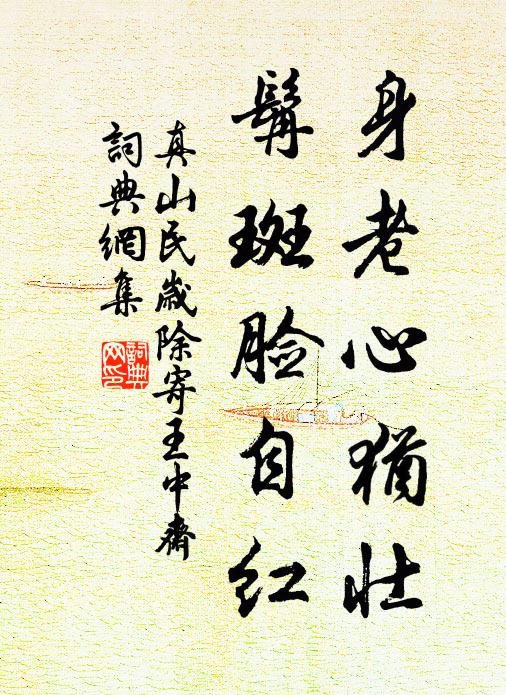 身老心猶壯
鬅斑脸自红
真山民歲除寄王中齋
詞典網集
詞典
网印